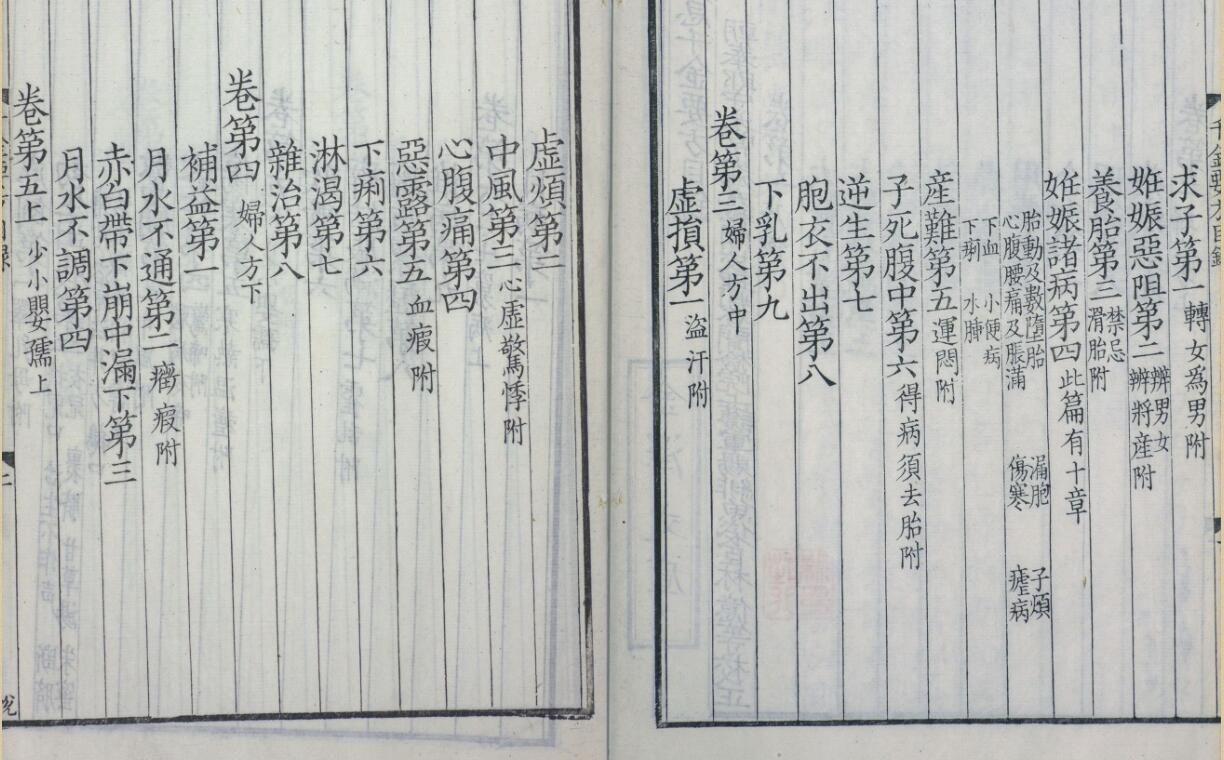 求子第一 轉女爲男附
姙娠惡阻第二 辨男女 辨將産附
養胎第三 禁忌 滑胎附
姙娠諸病第四 此篇有十章
胎動及數墮胎 漏胞 子煩
心腹腰痛及脹滿 傷寒 瘧病
下血 小便病
下痢 水腫
産難第五 運悶附
子死腹中第六 得病須去胎附
逆生第七
胞衣不出第八
下乳第九
卷第三 婦人方中
虚損第一 盜汗附
虚煩第二
中風第三 心虚驚悸附
心腹痛第四
惡露第五 血瘕附
下痢第六
淋渴第七
雜治第八
卷第四 婦人方下
補益第一
月水不通第二 癥瘕附
赤白帶下崩中漏下第三
月水不調第四
卷第五上 少小嬰孺上